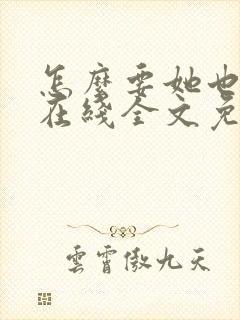 怎麼要她也
在綫全文免
雲霄傲九天